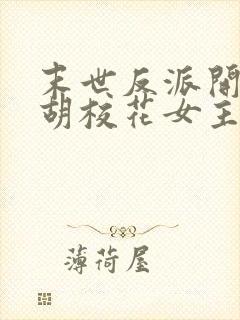 末世反派開
胡校花女主
薄荷屋